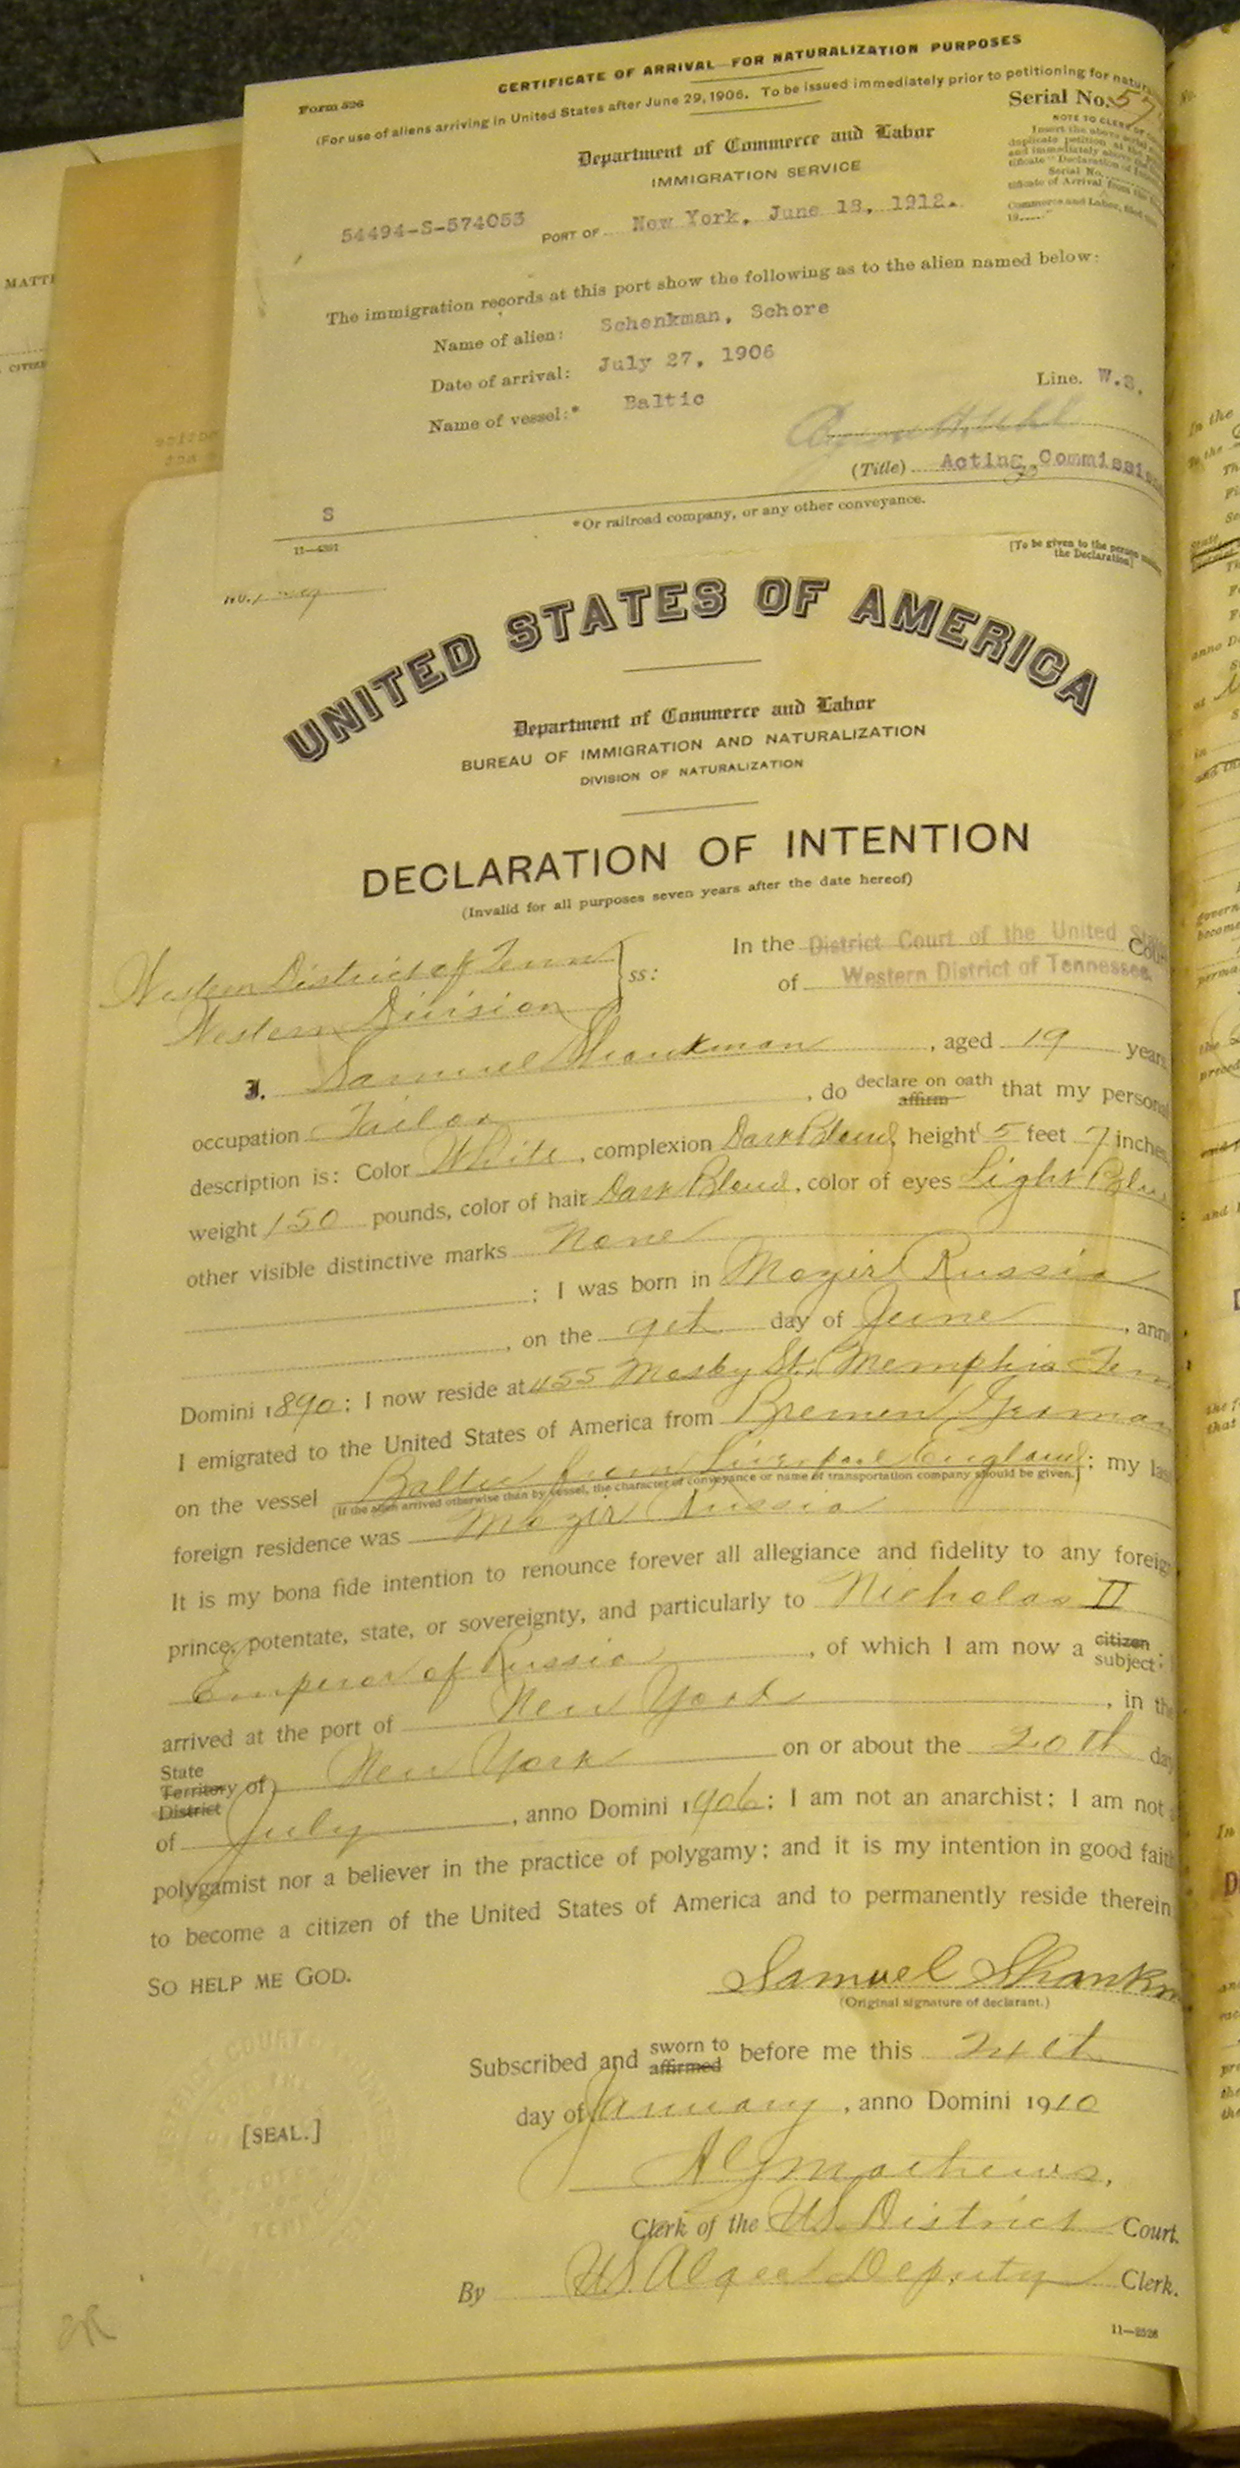 CERTIFICATE OF ARRIVAL—FOR NATURALIZATION PURPOSES
Form 526
(For use of aliens arriving in United States after June 29, 1906. To be issued immediately prior to petitioning for
Serial No.
NOTE TO CLERK OF
Department of Commerce and Labor
IMMIGRATION SERVICE
54494-S-574053 PORT OF New York, June 18, 1912.
The immigration records at this port show the following as to the alien named below:
Name of alien: Schenkman, Schore
Date of arrival: July 27, 1906
Name of vessel:* Baltic Line. W.S.
(Title) Acting Commissi
S
*Or railroad company, or any other conveyance.
[To be given to the person
the Declaration]
UNITED STATES OF AMERICA
Department of Commerce and Labor
BUREAU OF IMMIGRATION AND NATURALIZATION
DIVISION OF NATURALIZATION
DECLARATION OF INTENTION
(Invalid for all purposes seven years after the date hereof)
Western District of Tenn
Western Division
ss:
In the District Court of the United
of Western District of Tennessee.
I, Samuel Shankman, aged 19 years
occupation Tailor, do declare on oath affirm that my personal
description is: Color White, complexion Dark Blend, height 5 feet 7 inches
weight 150 pounds, color of hair Dark Blend, color of eyes Light Blu
other visible distinctive marks None
; I was born in Mozir Russia
, on the day of June, anno
Domini 1890; I now reside at 455 Mosby St. Memphis Ten
I emigrated to the United States of America from Bremen German
on the vessel Baltic from Liverpool England; my las
[If the alien arrived otherwise than by vessel, the character of conveyance or name of transportation company should be given.]
foreign residence was Mozir Russia
It is my bona fide intention to renounce forever all allegiance and fidelity to any foreign
prince, potentate, state, or sovereignty, and particularly to Nicholas II
Emperor of Russia, of which I am now a citizen subject;
arrived at the port of New York, in the
State Territory District of New York on or about the 20th day
of July, anno Domini 1906; I am not an anarchist; I am not
polygamist nor a believer in the practice of polygamy; and it is my intention in good faith
to become a citizen of the United States of America and to permanently reside therein
SO HELP ME GOD.
Samuel Shankm
(Original signature of declarant.)
Subscribed and sworn to affirmed before me this
day of January, anno Domini 1910
[SEAL.]
Mathews,
Clerk of the US District Court.
By Deputy Clerk.